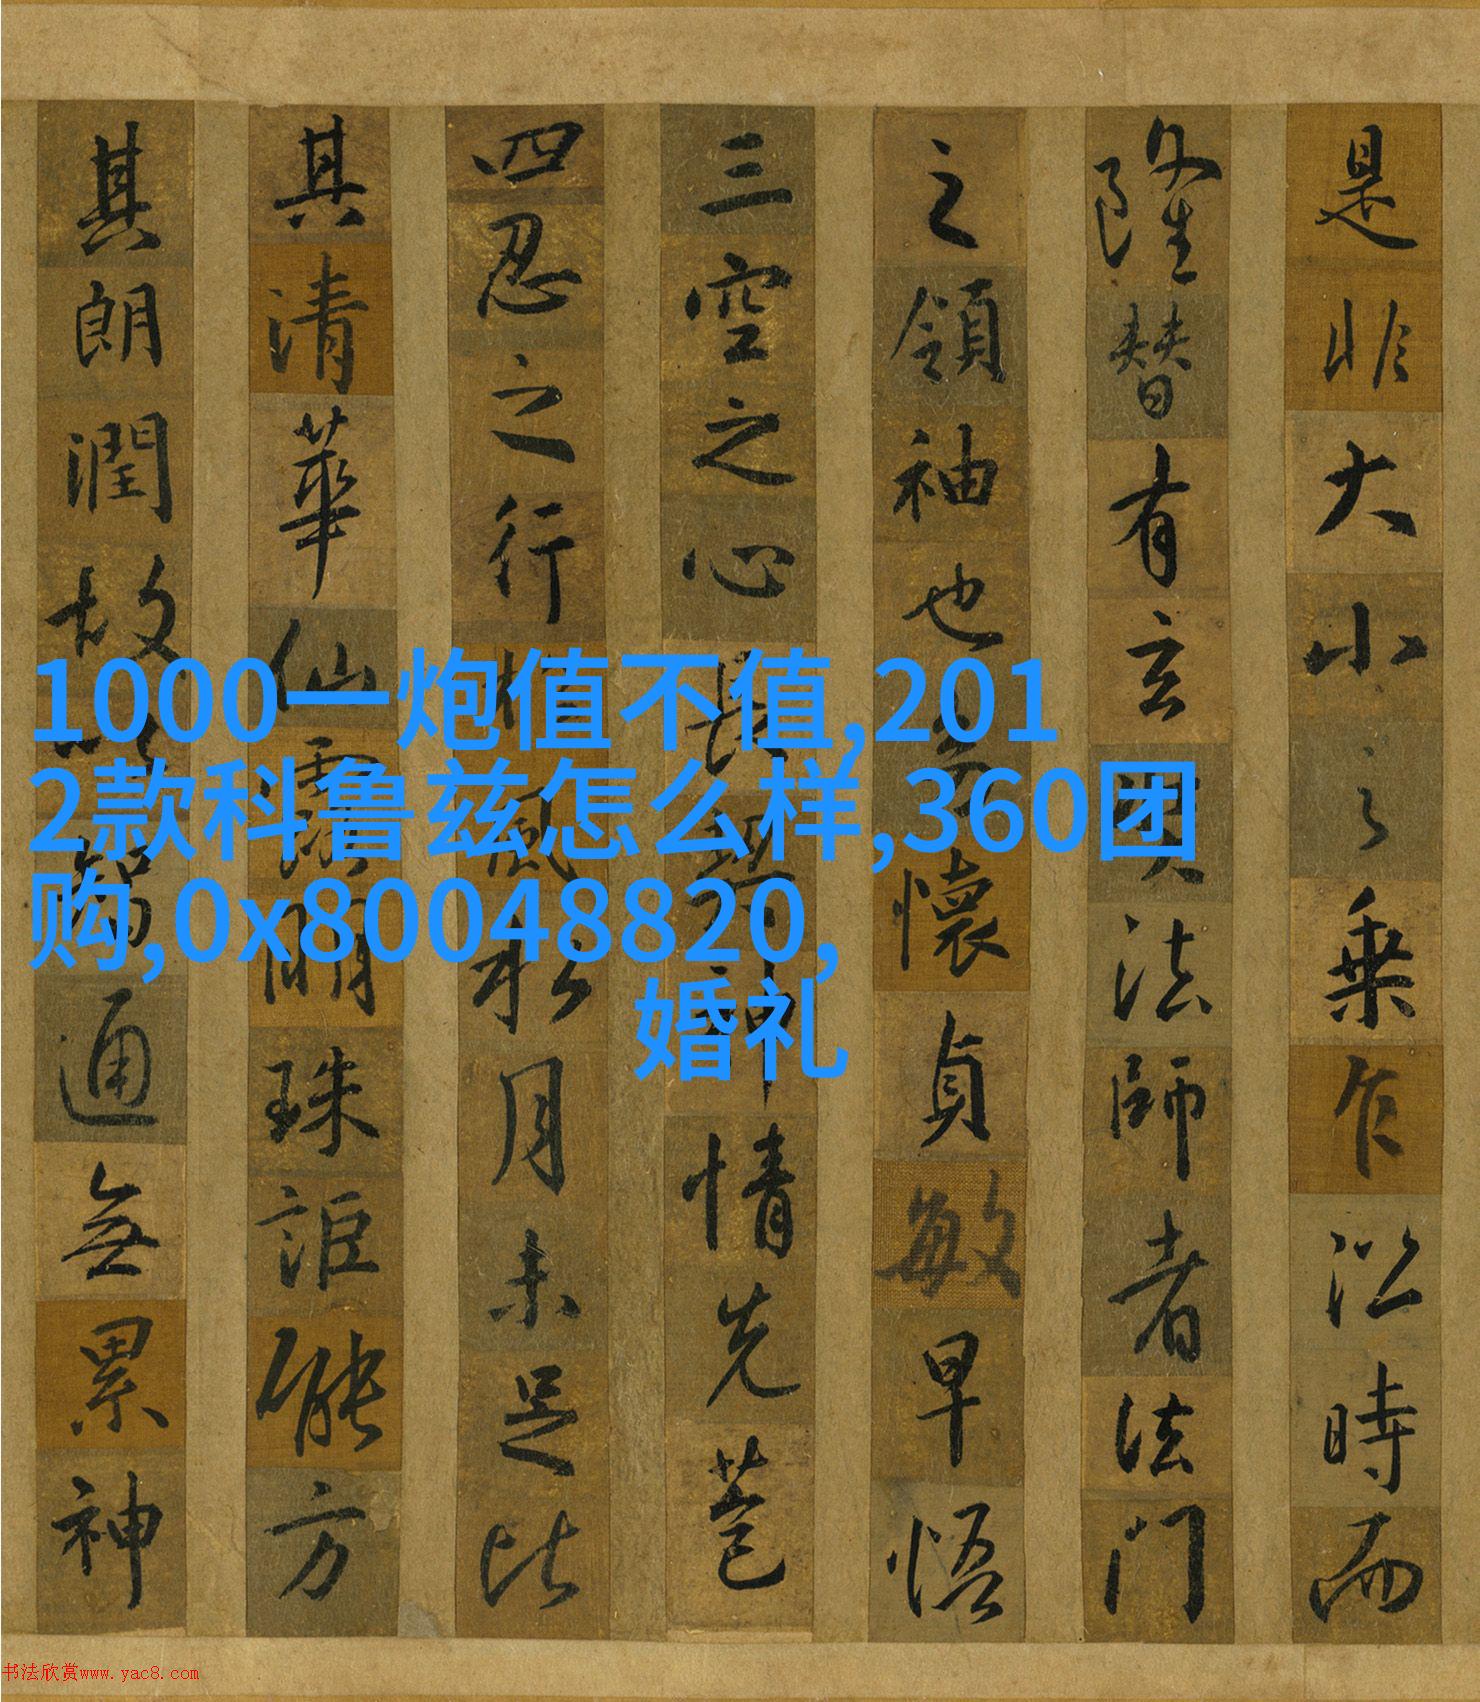 是非大小之乘乍沿時而
隆替有玄奘法師者法門
之領袖也幼懷貞敏早悟
三空之心長契神情先苞
四忍之行松風水月未足比
其清華仙露明珠詎能方
其朗潤故以智通無累神
1000一炮值不值,201
2款科鲁兹怎么样,360团
购,0x80048820,
婚礼
书法欣赏www.yac8.com